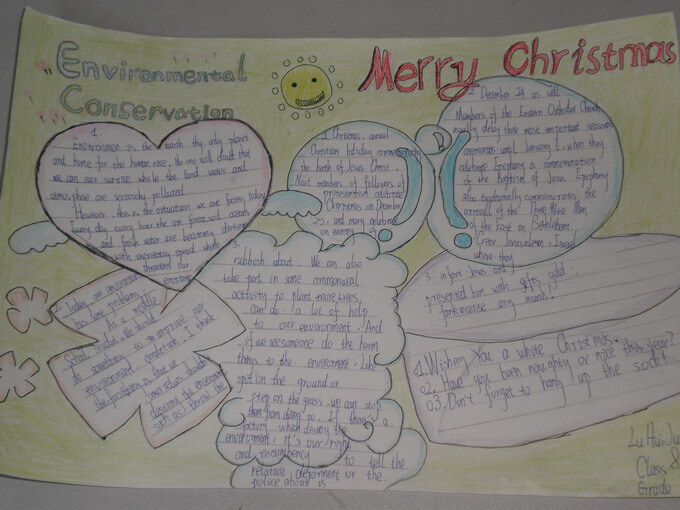 Environmental
Conservation
Merry Christmas
1.
Environmen is the earth thy only planet
and home for the human race. No one will doubt that
we can ever survive while the land water and
atmosphere are seriously polluted.
However, this is the situation we are facing today
every day every hour the air forest soil oceans
and fresh water are becoming
with increasing speed which
threatens our
existence
2. Today, our environment
has some problems.
As a middle
school student, We should
do something to improve our
environment condition. I think
the first thing is that we
ourselves shouldn't
destroy the environment
such as throw the
3.
rubbish about. We can also
take part in some commonweal
activity to plant more trees,
can do a lot of help
to our environment. And
if we see someone do the harm
things to the environment. Like
spit on the ground or
step on the grass, we can stop
them from doing so. If there's a
factory which destroy the
environment, it's our right
and incumbency to tell the
relative department or the
police about is
1 Christmas, annual
Christian holiday commemorating
the birth of Jesus Christ.
Most members of followers of
protestation celebrate
Christmas on December
25, and many celebrate
on evening of
2. December 24 as well
Members of the Eastern Orthodox Church
usually delay their most important seasonal
ceremonies until January 6, when they
celebrate Epiphany a commemoration
of the baptism of Jesus Epiphany
also traditionally commemorates the
arrival of the Three Wise Men
of the East in Bethlehem.
Near Jerusalem, Israel
where they
3. infant Jesus and
presented him with gifts gold.
frankincense any murrh.
01. Wishing You a white Christmas.
02. Have you been naughty or nice this year?
03. Don't forget to hang up the sock!
Class 8
Grade